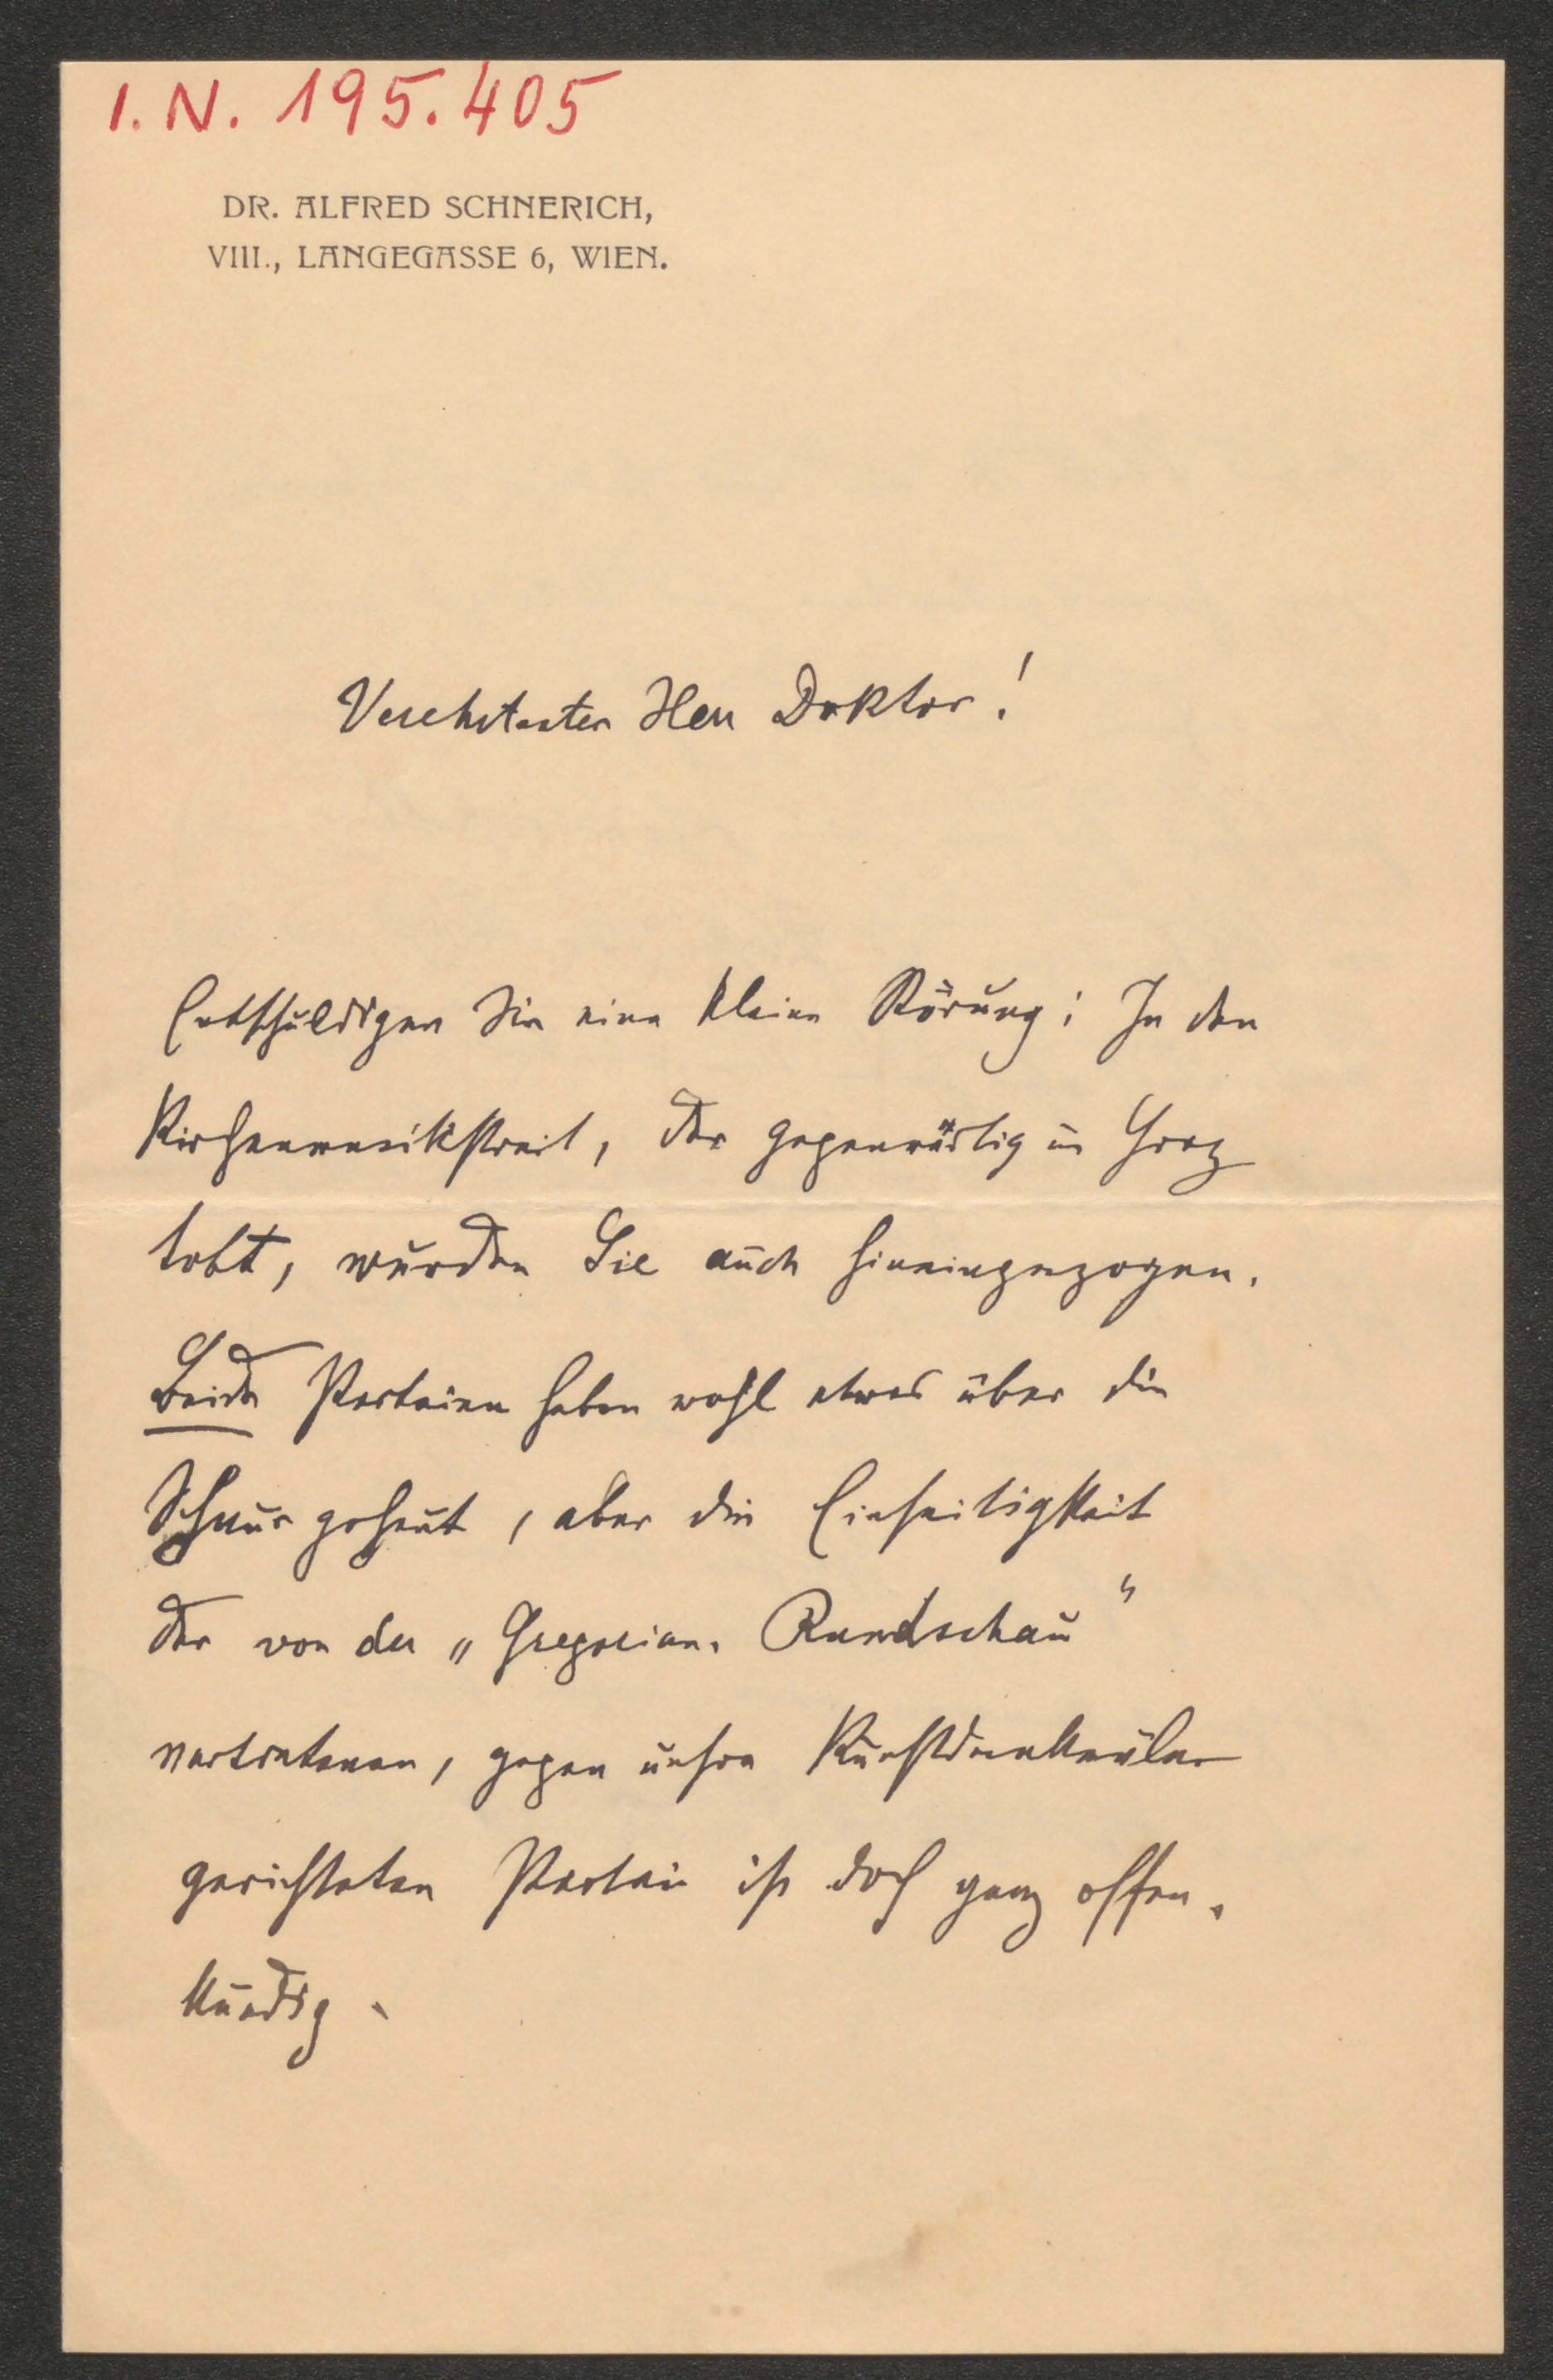 I. N. 195.405
DR. ALFRED SCHNERICH,
VIII., LANGEGASSE 6, WIEN.
Verehrtester Herr Doktor!
Entschuldigen Sie eine kleine Störung: In den
Kirchenmusikstreit, der gegenwärtig in Graz
tobt, wurden Sie auch hineingezogen.
Beide Parteien haben wohl etwas über die
Schnur gehaut, aber die Einseitigkeit
der von der „Gregorian. Rundschau“
vertretenen, gegen unsre Kunstdenkmäler
gerichteten Partei ist doch ganz offen-
kundig.